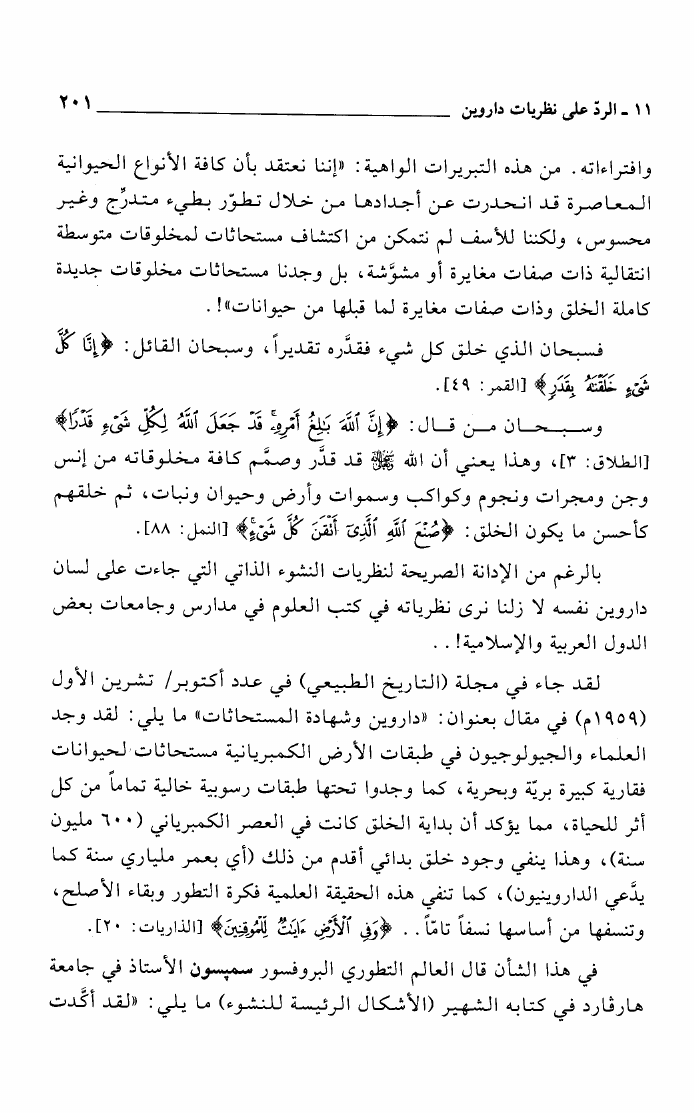 ١١ ـ الردّ على نظريات داروين ٢٠١
وافتراءاته. من هذه التبريرات الواهية: «إننا نعتقد بأن كافة الأنواع الحيوانية
المعاصرة قد انحدرت عن أجدادها من خلال تطوّر بطيء متدرِّج وغير
محسوس، ولكننا للأسف لم نتمكن من اكتشاف مستحاثات لمخلوقات متوسطة
انتقالية ذات صفات مغايرة أو مشوَّشة، بل وجدنا مستحاثات مخلوقات جديدة
كاملة الخلق وذات صفات مغايرة لما قبلها من حيوانات»!.
فسبحان الذي خلق كل شيء فقدَّره تقديراً، وسبحان القائل: ﴿إِنَّا كُلَّ
شَيْءٍ خَلَقْنَٰهُ بِقَدَرٍ﴾ [القمر: ٤٩].
وسبحان من قال: ﴿إِنَّ ٱللَّهَ بَٰلِغُ أَمْرِهِۦۚ قَدْ جَعَلَ ٱللَّهُ لِكُلِّ شَيْءٍ قَدْرًا﴾
[الطلاق: ٣]، وهذا يعني أن الله ﷻ قد قدَّر وصمَّم كافة مخلوقاته من إنس
وجن ومجرات ونجوم وكواكب وسموات وأرض وحيوان ونبات، ثم خلقهم
كأحسن ما يكون الخلق: ﴿صُنْعَ ٱللَّهِ ٱلَّذِيٓ أَتْقَنَ كُلَّ شَيْءٍۚ﴾ [النمل: ٨٨].
بالرغم من الإدانة الصريحة لنظريات النشوء الذاتي التي جاءت على لسان
داروين نفسه لا زلنا نرى نظرياته في كتب العلوم في مدارس وجامعات بعض
الدول العربية والإسلامية!..
لقد جاء في مجلة (التاريخ الطبيعي) في عدد أكتوبر/ تشرين الأول
(١٩٥٩م) في مقال بعنوان: «داروين وشهادة المستحاثات» ما يلي: لقد وجد
العلماء والجيولوجيون في طبقات الأرض الكمبريانية مستحاثات لحيوانات
فقارية كبيرة بريّة وبحرية، كما وجدوا تحتها طبقات رسوبية خالية تماماً من كل
أثر للحياة، مما يؤكد أن بداية الخلق كانت في العصر الكمبرياني (٦٠٠ مليون
سنة)، وهذا ينفي وجود خلق بدائي أقدم من ذلك (أي بعمر ملياري سنة كما
يدَّعي الداروينيون)، كما تنفي هذه الحقيقة العلمية فكرة التطور وبقاء الأصلح،
وتنسفها من أساسها نسفاً تامّاً.. ﴿وَفِي ٱلْأَرْضِ ءَايَٰتٌ لِّلْمُوقِنِينَ﴾ [الذاريات: ٢٠].
في هذا الشأن قال العالم التطوري البروفسور سمپسون الأستاذ في جامعة
هارڤارد في كتابه الشهير (الأشكال الرئيسة للنشوء) ما يلي: «لقد أكَّدت